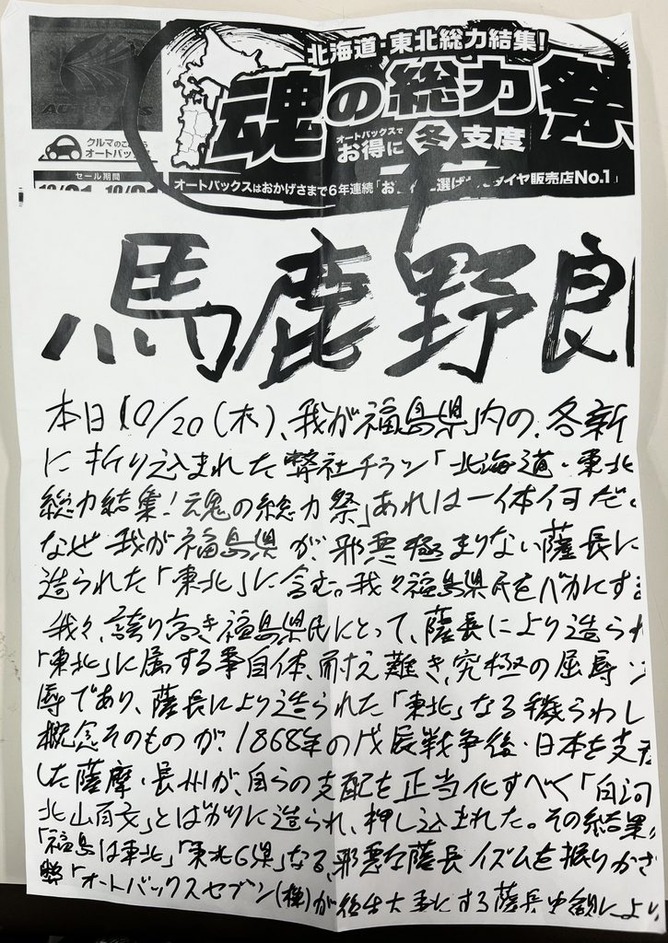 北海道・東北総力結集!
魂の総力祭
AUTOBACS
クルマのことなら
オートバックス
オートバックスで
お得に 冬 支度
セール期間
オートバックスはおかげさまで6年連続「お 選ば タイヤ販売店No.1」
馬鹿野郎
本日10/20(木)、我が福島県内の、各新
に折り込まれた弊社チラシ「北海道・東北
総力結集!魂の総力祭」あれは一体何だ
なぜ我が福島県が、邪悪極まりない薩長に
造られた「東北」に含む。我々福島県民をバカにする
我々、誇り高き福島県民にとって、薩長により造られ
「東北」に属する事自体、耐え難き、究極の屈辱
辱であり、薩長により造られた「東北」なる穢らわし
概念そのものが、1868年の戊辰戦争後・日本を支配
した薩摩・長州が、自らの支配を正当化すべく「白河
北山百文」とばかりに造られ、押し込まれた。その結果
「福島は東北」「東北6県」なる、邪悪な薩長イズムを振りかざ
「オートバックスセブン(株)が後生大事にする薩長史観により